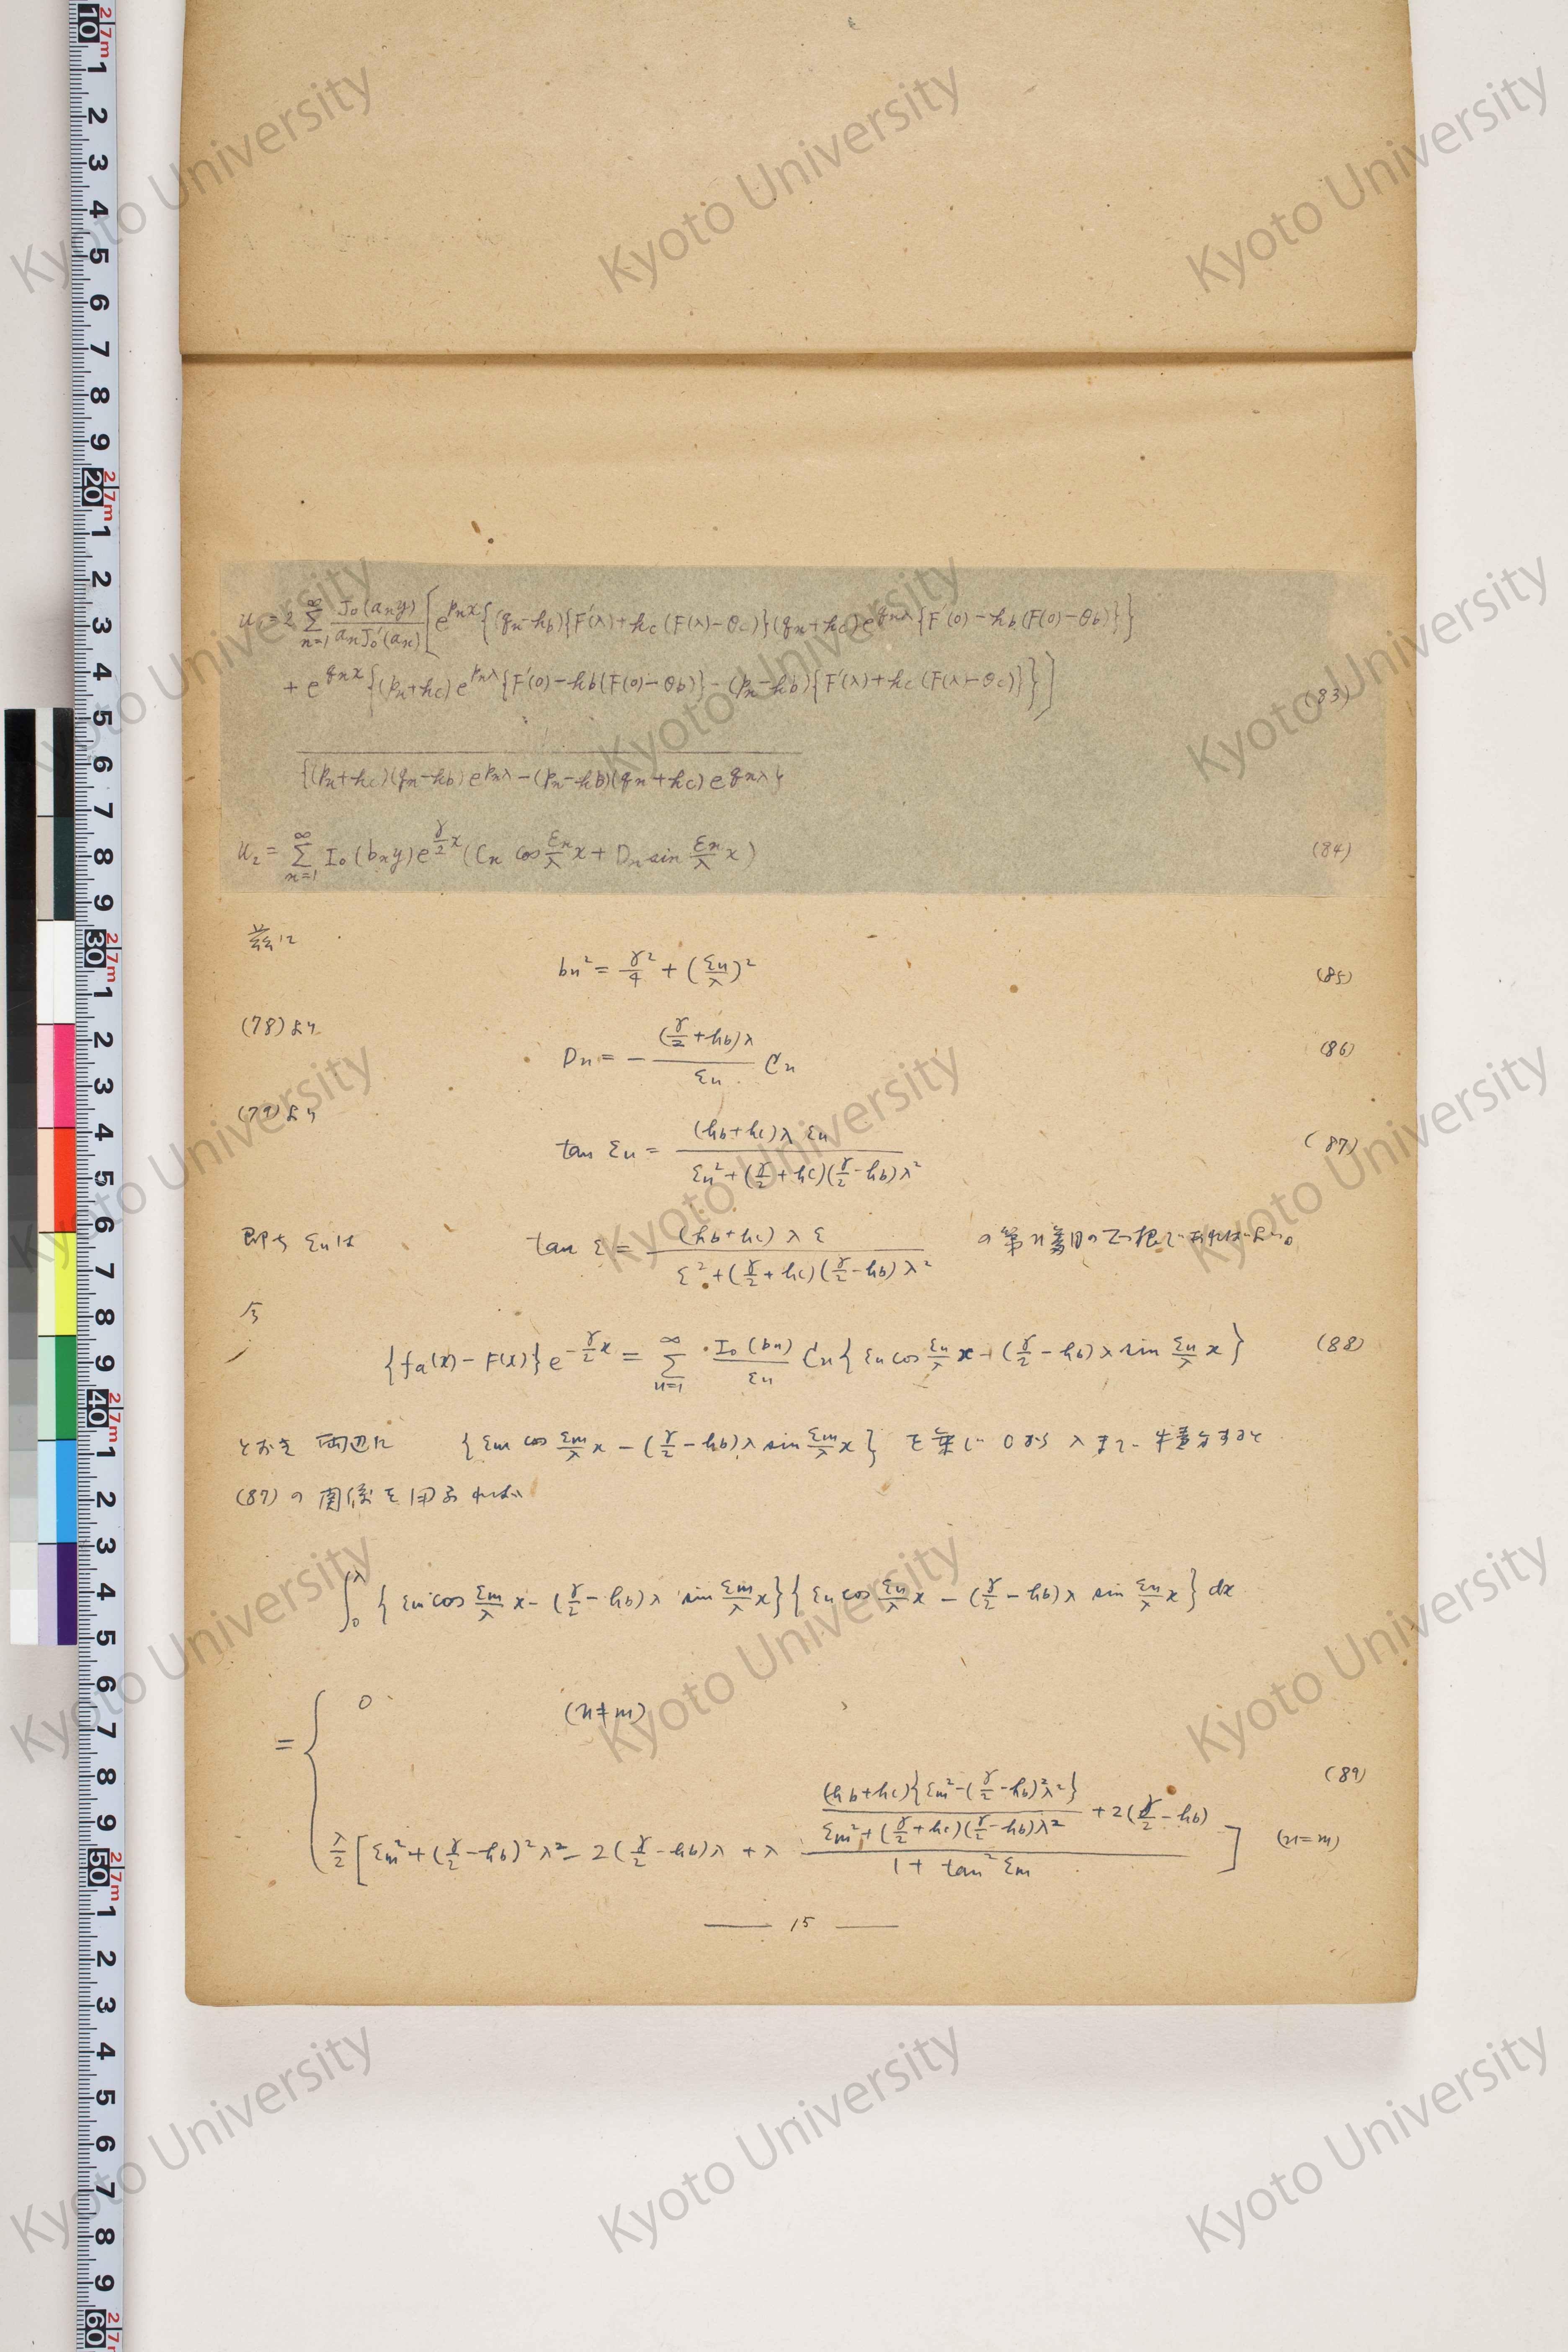 u₁ = 2 Σ_{n=1}^{∞} J₀(aₙy)/(aₙJ₀′(aₙ)) [e^{pₙx}{(qₙ−h_b){F′(λ)+h_c(F(λ)−θ_c)}(qₙ+h_c)e^{qₙλ}{F′(0)−h_b(F(0)−θ_b)}}
+ e^{qₙx}{(pₙ+h_c)e^{pₙλ}{F′(0)−h_b(F(0)−θ_b)}−(pₙ−h_b){F′(λ)+h_c(F(λ)−θ_c)}}] (83)
{(pₙ+h_c)(qₙ−h_b)e^{pₙλ}−(pₙ−h_b)(qₙ+h_c)e^{qₙλ}}
u₂ = Σ_{n=1}^{∞} I₀(bₙy)e^{γ/2 x}(Cₙ cos εₙ/λ x + Dₙ sin εₙ/λ x) (84)
茲に
bₙ² = γ²/4 + (εₙ/λ)² (85)
(78)より
Dₙ = − (γ/2+h_b)λ/εₙ Cₙ (86)
(79)より
tan εₙ = (h_b+h_c)λ εₙ / (εₙ²+(γ/2+h_c)(γ/2−h_b)λ²) (87)
即ち εₙは tan ε = (h_b+h_c)λ ε / (ε²+(γ/2+h_c)(γ/2−h_b)λ²) の第n番目の正根であればよい。
今
{f_a(x)−F(x)}e^{−γ/2 x} = Σ_{n=1}^{∞} I₀(bₙ)/εₙ Cₙ{εₙ cos εₙ/λ x − (γ/2−h_b)λ sin εₙ/λ x} (88)
とおき 両辺に {εₘ cos εₘ/λ x − (γ/2−h_b)λ sin εₘ/λ x} を乗じ 0から λまで 積分すると
(87)の関係を用ふれば
∫₀^λ {εₘ cos εₘ/λ x − (γ/2−h_b)λ sin εₘ/λ x}{εₙ cos εₙ/λ x − (γ/2−h_b)λ sin εₙ/λ x} dx
= { 0 (n≠m)
λ/2 [εₘ²+(γ/2−h_b)²λ²−2(γ/2−h_b)λ + λ ((h_b+h_c){εₘ²−(γ/2−h_b)²λ²}/(εₘ²+(γ/2+h_c)(γ/2−h_b)λ²) + 2(γ/2−h_b))/(1+tan²εₘ)] (n=m) (89)
—— 15 ——